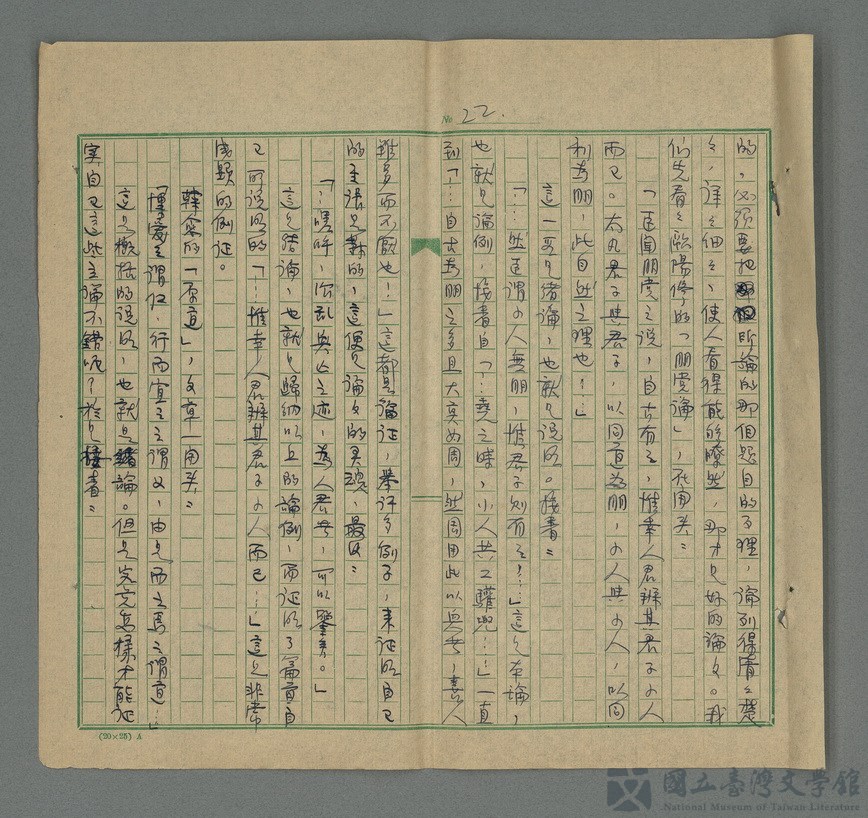 No 22.
的，必須要把所論的那個題目的道理，論列得清々楚
々，詳々細々，使人看得能夠瞭然，那才是好的論文。我
们先看々歐陽修的「朋党論」，在開头：
「臣闻朋党之说，自古有之，惟幸人君辨其君子小人
而已。大凡君子與君子，以同道為朋，小人與小人，以同
利為朋，此自然之理也！…」
這一段是绪論，也就是说明。接着：
「…然臣谓小人無朋，惟君子则有之！…」這是本論，
也就是論例，接着自「…堯之時，小人共工驩兜…」一直
到「…自古為朋之多且大莫如周，然周用此以興者，善人
雖多而不厭也！」這都是論证，举许多例子，来证明自己
的主張是對的，這便是論文的，最後：
「…嗟呼，治乱興亡之迹，為人君者，可以鑒矣。」
這是结論，也就是歸纳以上的論例，而证明了篇首自
己所说明的「…惟幸人君辨其君子小人而已…」這是非常
明顯的例证。
韓愈的「原道」，文章一開头：
「博愛之谓仁，行而宜之之谓义，由是而之焉之谓道…」
這是概括的说明，也就是緒論。但是究竟怎樣才能证
实自已這些主論不錯呢？於是接着：
(20×25) A
國立臺灣文學館
National Museum of Taiwan Literature